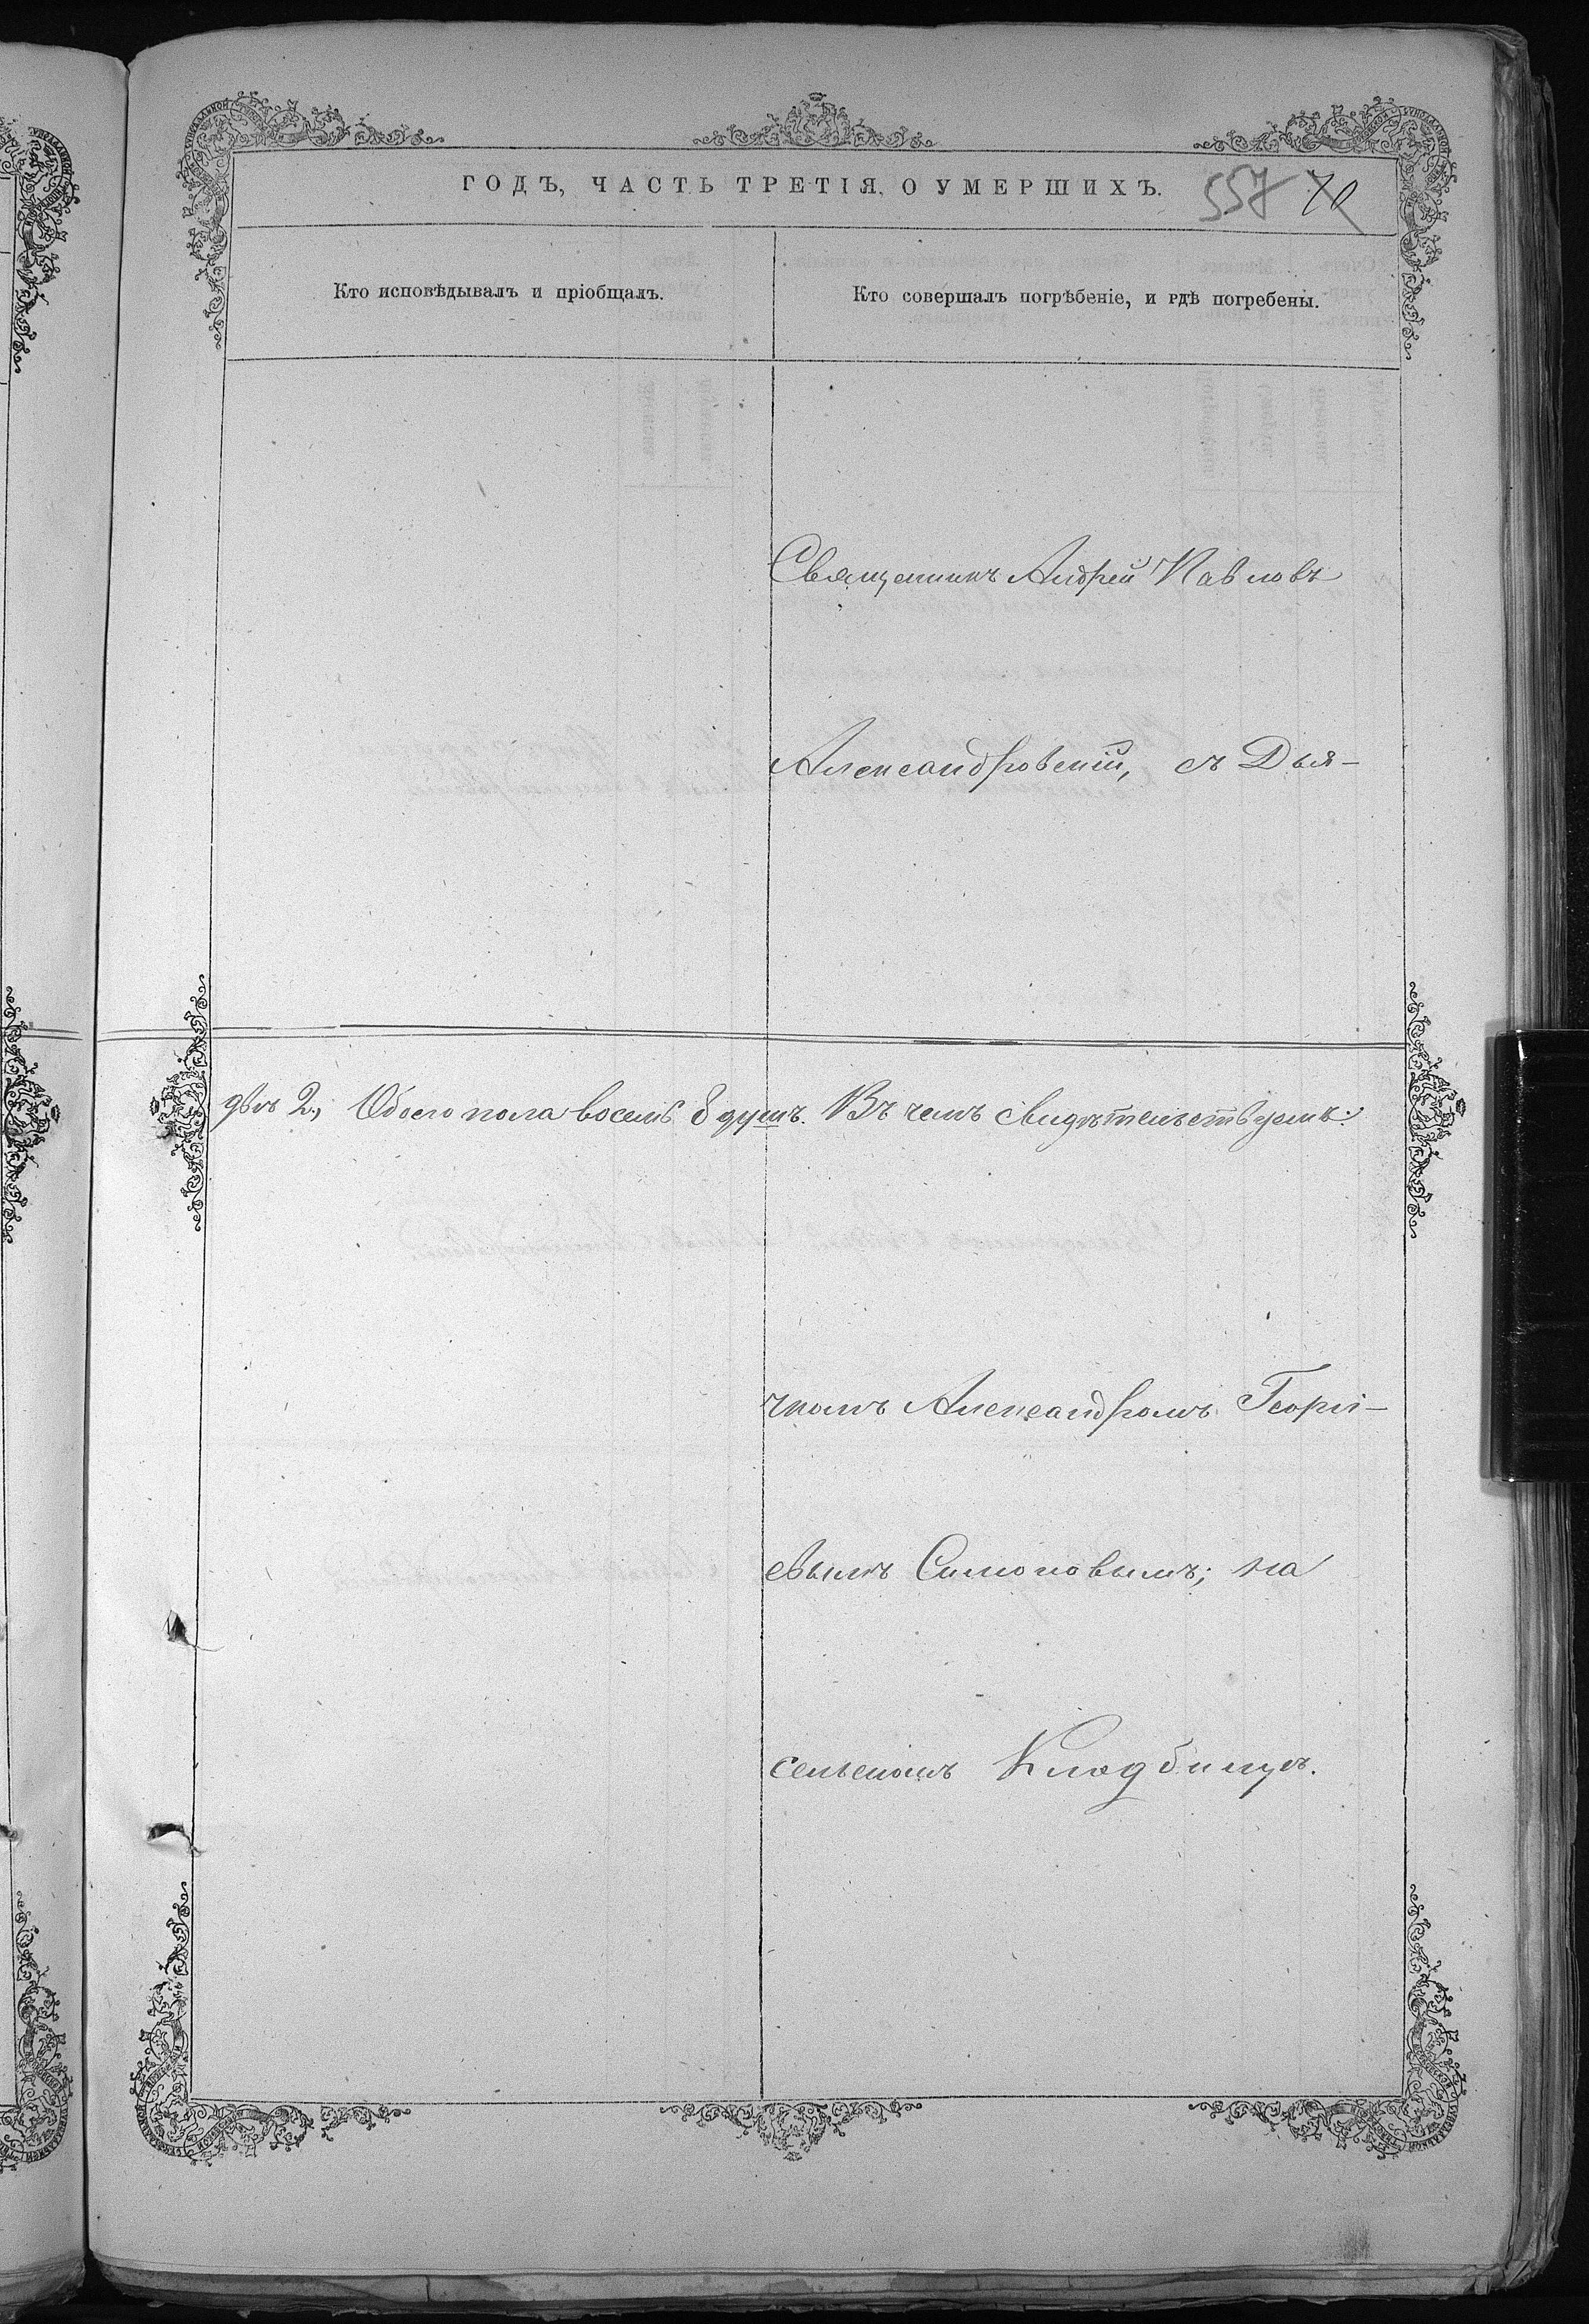 ГОДЪ, ЧАСТЬ ТРЕТІЯ, О УМЕРШИХЪ.
557 70
Кто исповѣдывалъ и пріобщалъ.
Кто совершалъ погрѣбеніе, и гдѣ погребены.
Священникъ Андрей Павловъ
Александровскій, съ Дья-
двѣ 2, Обоего пола восемь 8 душъ. Въ чемъ свидѣтельствуемъ:
чкомъ Александромъ Георгі-
евымъ Симоновымъ; на
сельскомъ Кладбищѣ.